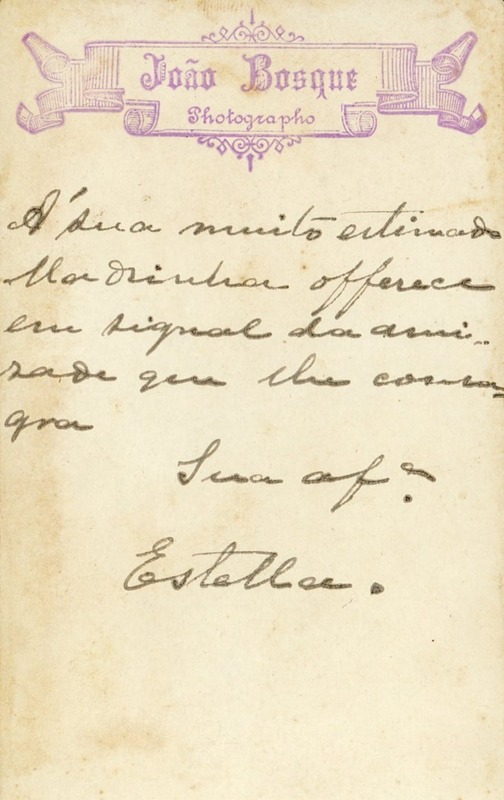 João Bosque
Photographo
A' sua muito estimada
Madrinha offerece
em signal da ami-
zade que lhe consa-
gra
Sua afª
Estella.